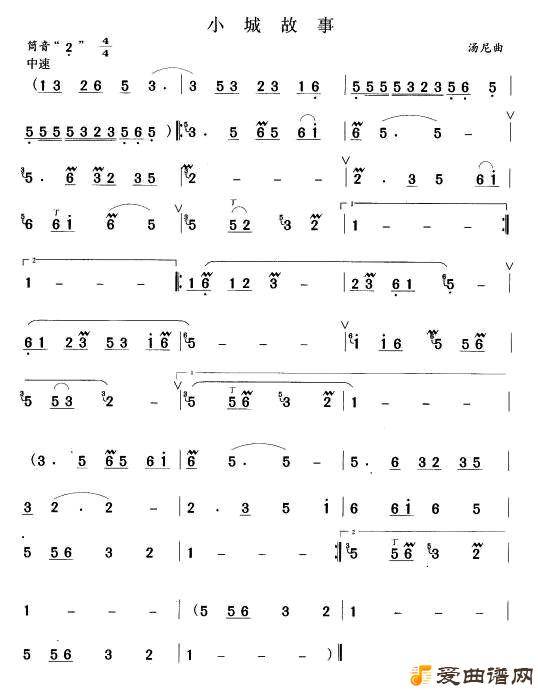 小城故事
筒音“2” 4/4
中速 汤尼曲
(1 3 2 6 5 3· | 3 5 3 2 1 1 3 | 5 5 5 5 3 2 3 5 6 5
5 5 5 5 5 3 2 3 5 6 5 ) |: 3· 5 6 5 6 i | 6 5· 5 -
5· 6 3 2 3 5 | 2 - - - | 2· 3 5 6 i
6 6 i 6 5 | 5 5 2 3 2 | 1 - - - :|
1 - - - |: 1 6 1 2 3 | 2 3 6 1 5 -
6 1 2 3 5 3 i 6 | 5 - - - | i i 6 5 5 6
5 5 3 2 - | 5 5 6 3 2 | 1 - - -
(3· 5 6 5 6 i | 6 5· 5 - | 5· 6 3 2 3 5
3 2· 2 - | 2· 3 5 i | 6 6 i 6 5
5 5 6 3 2 | 1 - - - :| 5 5 6 3 2
1 - - - | (5 5 6 3 2 | 1 - - -
5 5 6 3 2 | 1 - - - )‖
爱曲谱网